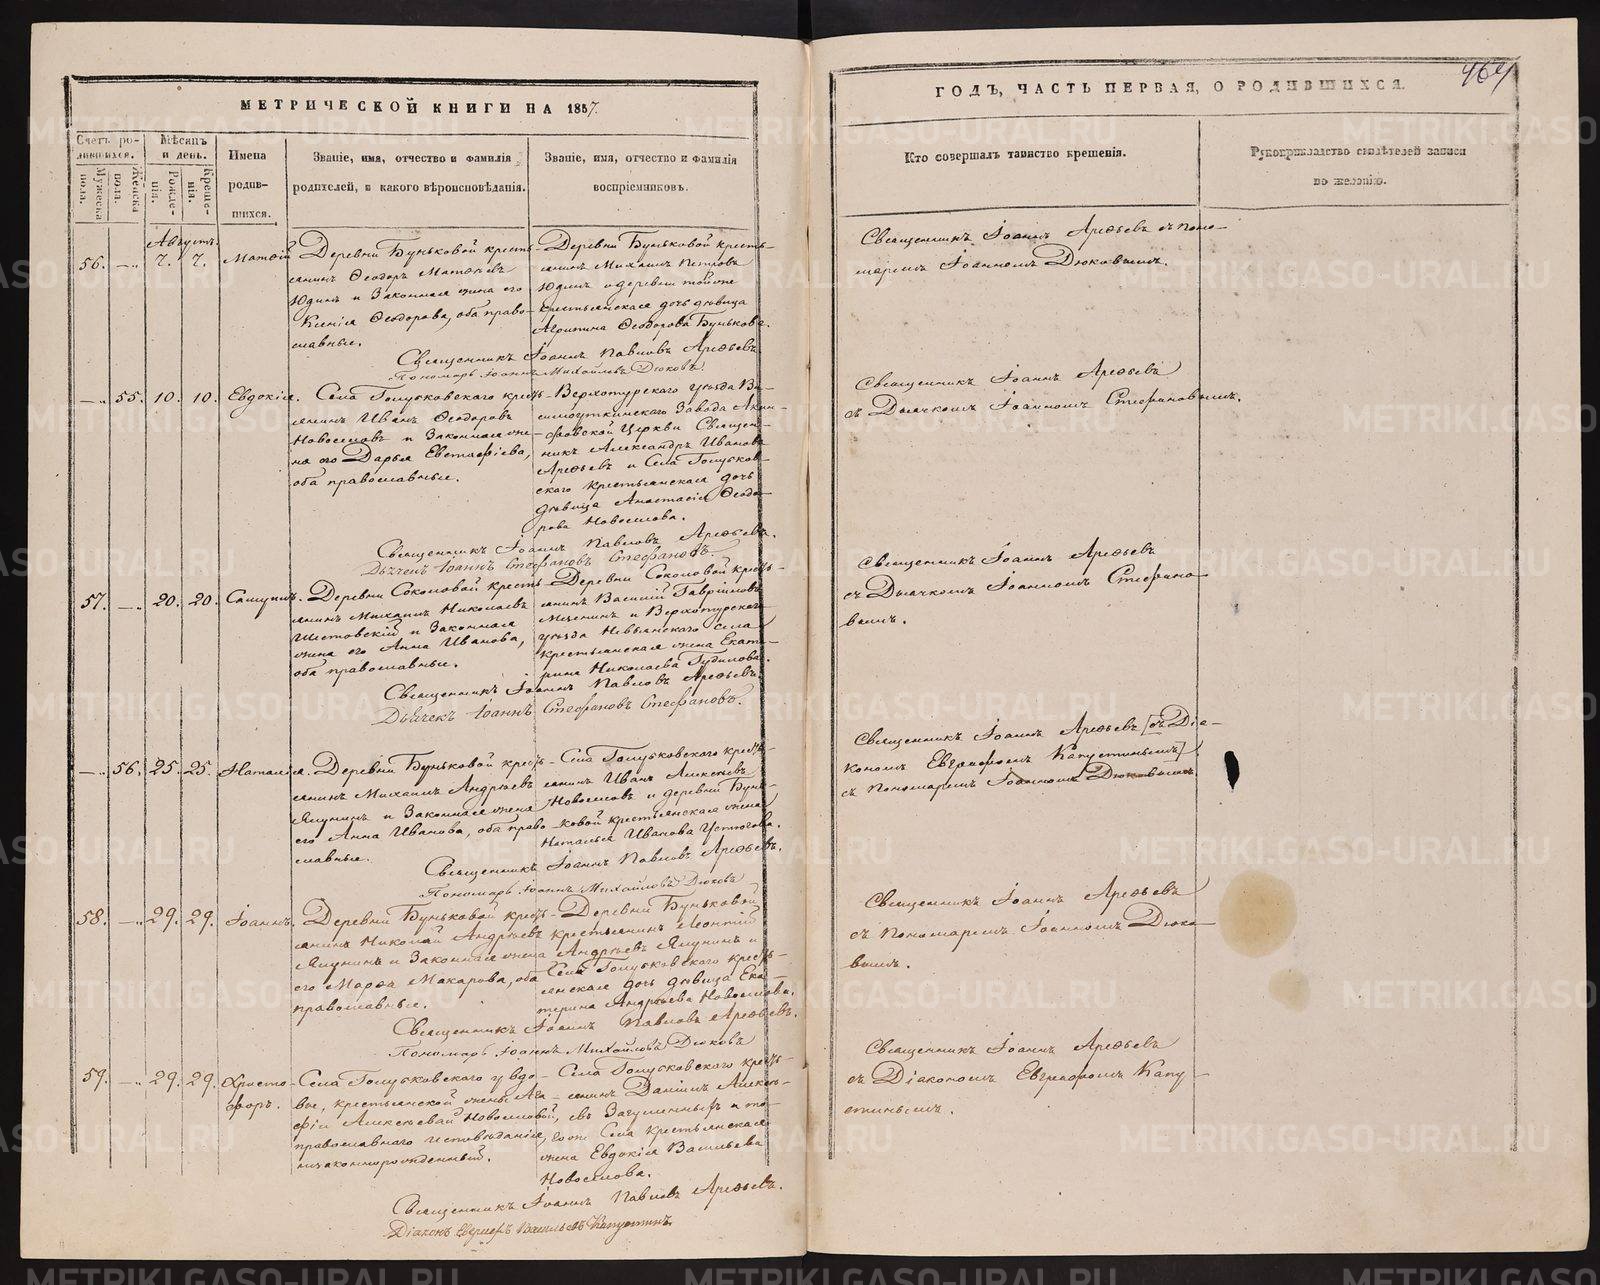 МЕТРИЧЕСКОЙ КНИГИ НА 1857.
Счетъ ро-
дившихся.
Мужеска
пола.
Женска
пола.
Мѣсяцъ
и день.
Рожде-
нія.
Креще-
нія.
Имена
родив-
шихся.
Званіе, имя, отчество и фамилія
родителей, и какого вѣроисповѣданія.
Званіе, имя, отчество и фамилія
воспріемниковъ.
Августъ
56. 7. 7. Матѳій
Деревни Буньковой кресть-
янинъ Ѳеодоръ Матѳіевъ
Юдинъ и Законная жена его
Ксенія Ѳеодорова, оба право-
славные.
Деревни Буньковой кресть-
янинъ Михаилъ Петровъ
Юдинъ и деревни тойже
крестьянская дочь дѣвица
Ѳеодорова Бунькова.
Священникъ Іоаннъ Павловъ Арефьевъ
Пономарь Іоаннъ Михайловъ Дюковъ
55. 10. 10. Евдокія.
Села Голубковскаго кресть-
янинъ Иванъ Ѳеодоровъ
Новоселовъ и Законная же-
на его Дарья Евстафіева,
оба православные.
Верхотурскаго уѣзда Ви-
симоуткинскаго Завода Акин-
фовской Церкви Священ-
никъ Александръ Ивановъ
Арефьевъ и Села Голубков-
скаго крестьянская дочь
дѣвица Анастасія Ѳеодо-
рова Новоселова.
Священникъ Іоаннъ Павловъ Арефьевъ.
Дьячекъ Іоаннъ Стефановъ Стефановъ
57. 20. 20. Самуилъ.
Деревни Соколовой кресть-
янинъ Михаилъ Николаевъ
и Законная
жена его Анна Иванова,
оба православные.
Деревни Соколовой кресть-
янинъ Василій Гавріиловъ
и Верхотурскаго
уѣзда Невьянскаго села
крестьянская жена Екате-
рина Николаева
Священникъ Іоаннъ Павловъ Арефьевъ.
Дьячекъ Іоаннъ Стефановъ Стефановъ.
56. 25. 25. Наталія.
Деревни Буньковой кресть-
янинъ Михаилъ Андреевъ
Ялунинъ и Законная жена
его Анна Иванова, оба право-
славные.
Села Голубковскаго кресть-
янинъ Иванъ Алексѣевъ
Новоселовъ и деревни Бунь-
ковой крестьянская жена
Наталья Иванова Устюгова.
Священникъ Іоаннъ Павловъ Арефьевъ.
Пономарь Іоаннъ Михайловъ Дюковъ
58. 29. 29. Іоаннъ.
Деревни Буньковой кресть-
янинъ Николай Андреевъ
Ялунинъ и Законная жена
его Марѳа Макарова, оба
православные.
Деревни Буньковой
крестьянинъ Леонтій
Андреевъ Ялунинъ и
Села Голубковскаго кресть-
янская дочь дѣвица Ека-
терина Андреева Новоселова.
Священникъ Іоаннъ Павловъ Арефьевъ.
Пономарь Іоаннъ Михайловъ Дюковъ
59. 29. 29. Христо-
форъ.
Села Голубковскаго у вдо-
вы, крестьянской жены Ага-
фіи Алексѣевой Новоселовой,
православнаго исповѣданія,
незаконнорожденный.
Села Голубковскаго кресть-
янинъ Даніилъ Алексѣ-
евъ и то-
гоже Села крестьянская
жена Евдокія Васильева
Новоселова.
Священникъ Іоаннъ Павловъ Арефьевъ.
Діаконъ Евграфъ Васильевъ Капустинъ.
ГОДЪ, ЧАСТЬ ПЕРВАЯ, О РОДИВШИХСЯ.
464
Кто совершалъ таинство крещенія.
Рукоприкладство свидѣтелей записи
по желанію.
Священникъ Іоаннъ Арефьевъ съ поно-
маремъ Іоанномъ Дюковымъ.
Священникъ Іоаннъ Арефьевъ
съ Дьячкомъ Іоанномъ Стефановымъ.
Священникъ Іоаннъ Арефьевъ
съ Дьячкомъ Іоанномъ Стефано-
вымъ.
Священникъ Іоаннъ Арефьевъ [съ Діа-
кономъ Евграфомъ Капустинымъ]
съ пономаремъ Іоанномъ Дюковымъ
Священникъ Іоаннъ Арефьевъ
съ пономаремъ Іоанномъ Дюко-
вымъ.
Священникъ Іоаннъ Арефьевъ
съ Діакономъ Евграфомъ Капу-
стинымъ.
METRIKI.GASO-URAL.RU